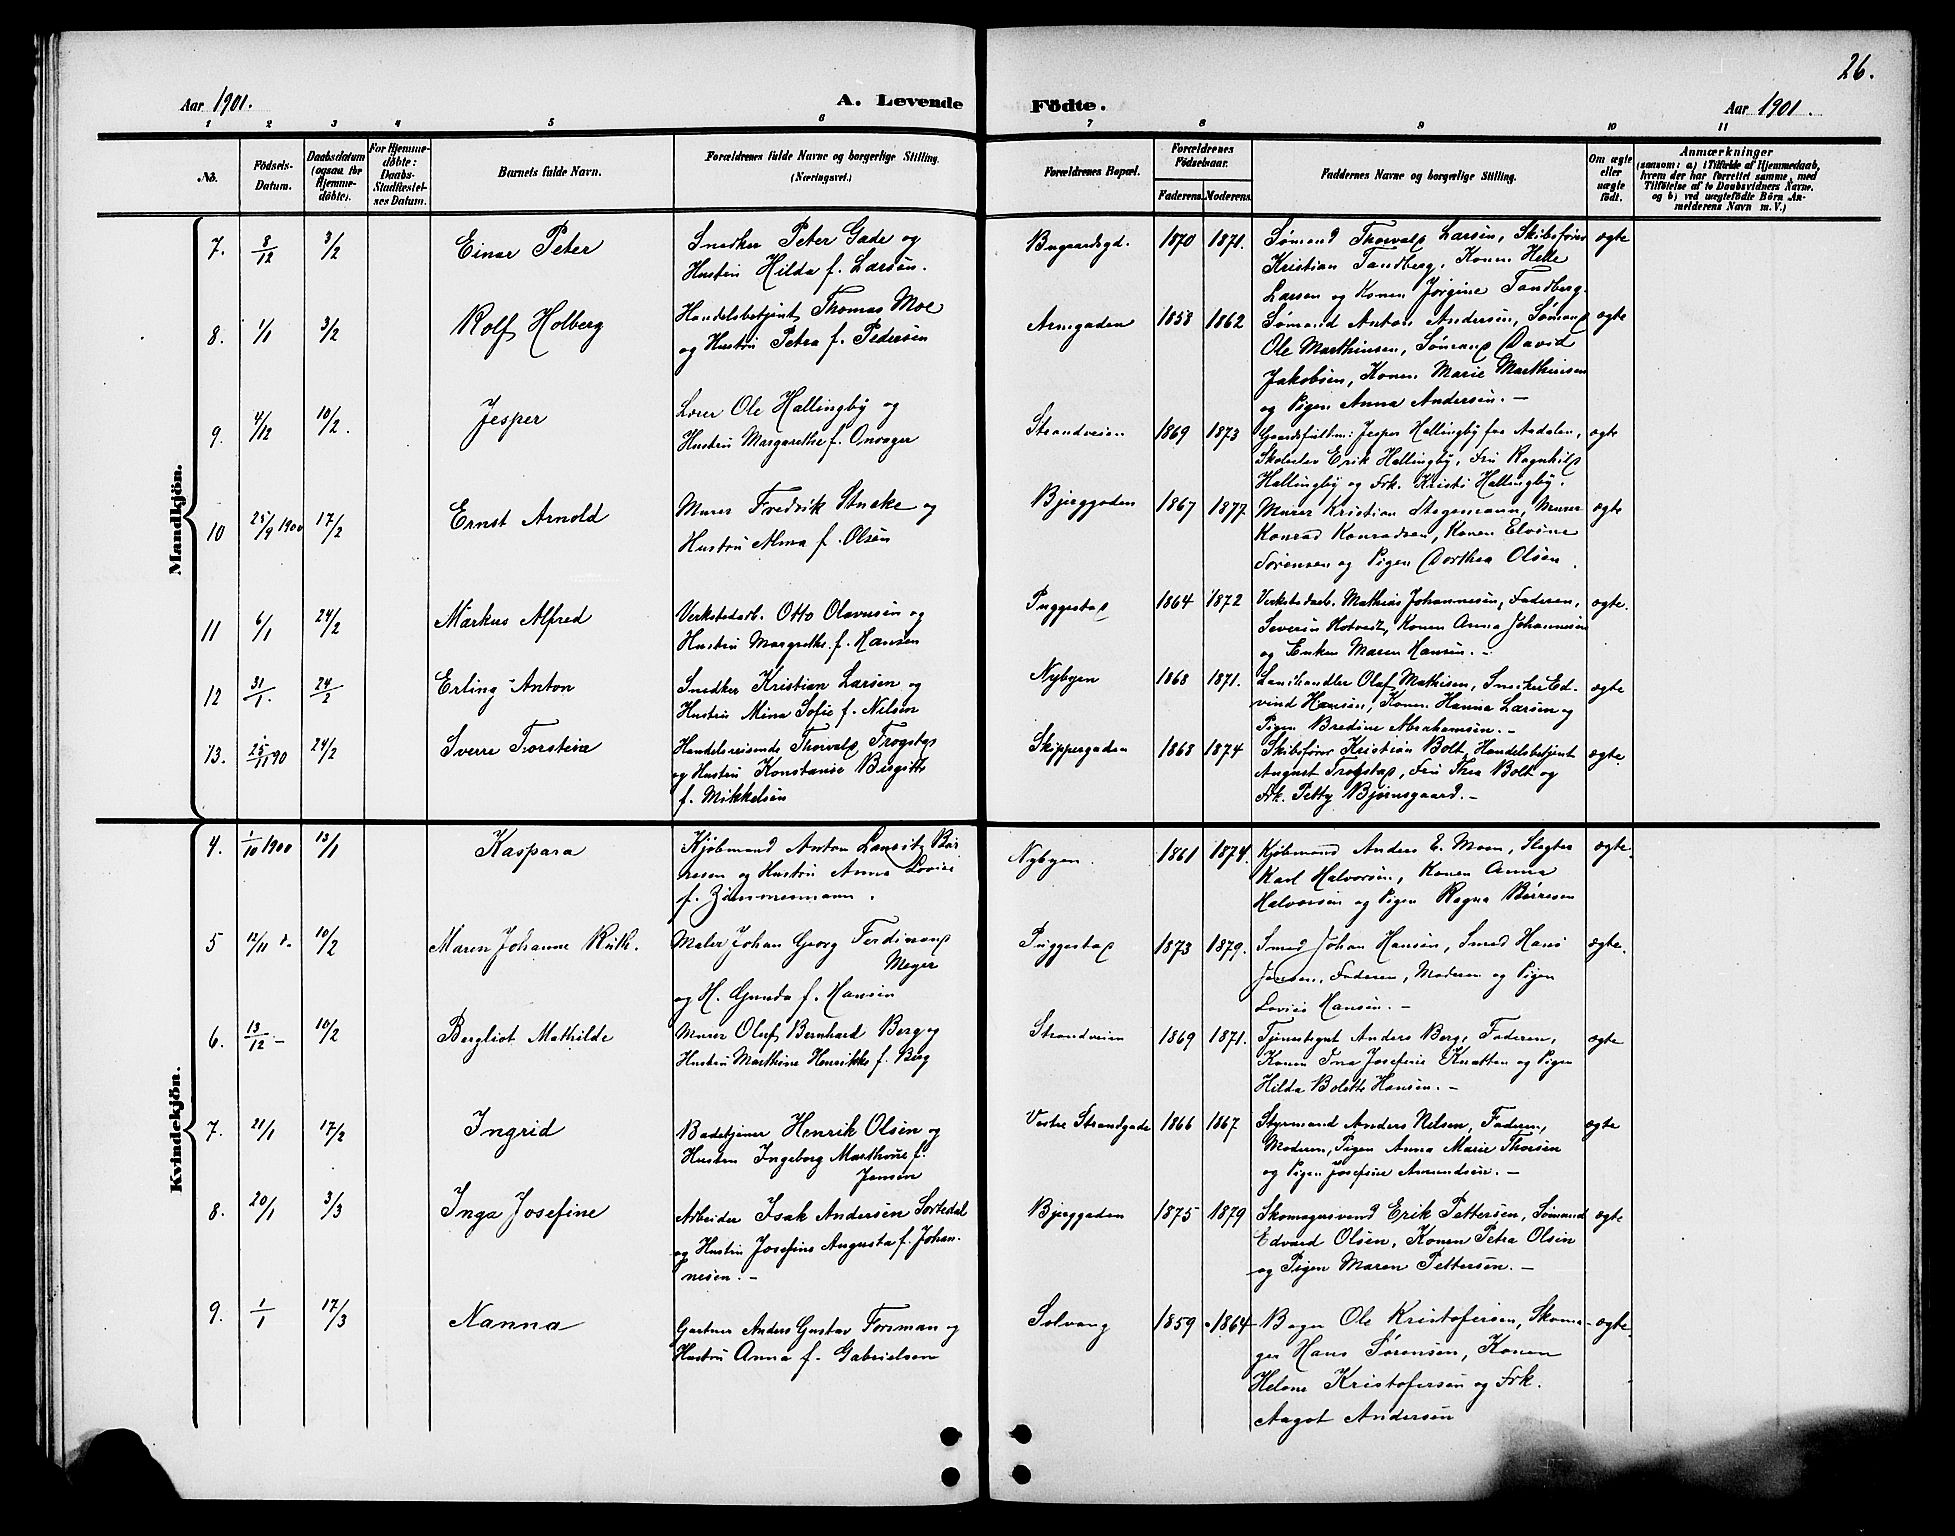 26.
Aar 1901.
A. Levende Födte.
Aar 1901.
1 2 3 4 5 6 7 8 9 10 11
No.
Födsels-
Datum.
Daabsdatum
(ogsaa for
Hjemme-
döbte).
For Hjemme-
döbte:
Daabs-
Stadfæstel-
ses Datum.
Barnets fulde Navn.
Forældrenes fulde Navne og borgerlige Stilling.
(Næringsvei.)
Forældrenes Bopæl.
Forældrenes
Födselsaar.
Faderens. Moderens.
Faddernes Navne og borgerlige Stilling.
Om ægte
eller
uægte
født.
Anmærkninger
(saasom: a) i Tilfælde af Hjemmedaab,
hvem der har forrettet samme, med
Tilföielse af to Daabsvidners Navne.
og b) ved uægtefödte Börn An-
melderens Navn m. V.)
Mandkjön.
7. 8/12 3/2 Einar Peter
Snedker Peter Gade og
Hustru Hilda f. Larsen.
1870 1871.
Sømand Thorvald Larsen, Skibsfører
Kristian Tandberg, Konen
Larsen og Konen Jørgine Tandberg.
ægte
8. 1/1 3/2 Rolf Holberg
Handelsbetjent Thomas Moe
og Hustru Petra f. Pedersen
Armgaden 1853 1862
Sømand Anton Andersen, Sømand
Ole Marthinsen, Sømand David
Jakobsen, Konen Marie Marthinsen
og Pigen Anna Andersen. –
ægte
9. 4/12 10/2. Jesper
Lærer Ole Hallingby og
Hustru Margarethe f. Onsager
Strandveien 1869 1873
Gaardsfuldm: Jesper Hallingby fra Aadalen,
Skoleelev Erik Hallingby, Fru Ragnhild
Hallingby og Frk. Kristi Hallingby.
ægte
10 25/9 1900 17/2 Ernst Arnold
Murer Fredrik Stucke og
Hustru Alma f. Olsen
Bjerggaden 1867 1877
Murer Kristian Stegemann, Murer
Konrad Konradsen, Konen Elvine
Sørensen og Pigen Dorthea Olsen.
ægte
11 6/1 24/2 Markus Alfred
Verkstedarb. Otto Olavesen og
Hustru Margrethe f. Hansen
Puggestad 1864 1872
Verkstedarb. Mathias Johannesen, Faderen,
Severin Hotvedt, Konen Anna Johannesen
og Enken Maren Hansen. –
ægte.
12 31/1. 24/2 Erling Anton
Snedker Kristian Larsen og
Hustru Mina Sofie f. Nilsen
Nybyen 1868 1871.
Landhandler Olaf Mathisen, Snedker Ed-
vind Hansen, Konen Hanna Larsen og
Pigen Bredine Abrahamsen. –
ægte
13. 25/11 90 24/2 Sverre Torstein
Handelsreisende Thorvald Trogstad
og Hustru Konstanse Birgitte
f. Mikkelsen
Skippergaden 1868 1874
Skibsfører Kristian Bolt, Handelsbetjent
August Trogstad, Fru Thea Bolt og
Frk. Petty Bjørnsgaard. –
ægte.
Kvindekjön.
4. 1/10 1900 13/1 Kaspara
Kjøbmand Anton Lauritz Bør
resen og Hustru Anna Lovise
f. Zimmermann.
Nybyen. 1861 1874.
Kjøbmand Anders E. Moen, Slagter
Karl Halvorsen, Konen Anna
Halvorsen og Pigen Ragna Børresen
ægte.
5 12/11 10/2 Maren Johanne Ruth.
Maler Johan Georg Ferdinand
Meyer
og H. Gunda f. Hansen
Puggestad 1873 1879.
Smed Johan Hansen, Smed Hans
Jensen, Faderen, Moderen og Pigen
Lovise Hansen. –
ægte.
6. 13/12 – 10/2 Bergliot Mathilde
Murer Oluf Bernhard Berg og
Hustru Marthine Henrikke f. Berg
Strandveien 1869 1871.
Tjenestegut Anders Berg, Faderen,
Konen Ina Josefine Knatten og Pigen
Hilda Bolette Hansen. –
ægte
7. 21/1 17/2 Ingrid
Badetjener Henrik Olsen og
Hustru Ingeborg Marthine f.
Jensen
Vestre Strandgade 1866 1867
Styrmand Anders Nelsen, Faderen,
Moderen, Pigen Anna Marie Thorsen
og Pigen Josefine Amundsen. –
ægte
8. 20/1 3/3 Inga Josefine
Arbeider Isak Andersen Sortedal
og Hustru Josefine Augusta f. Johan-
nesen. –
Bjerggaden 1875 1879
Skomagersvend Erik Pettersen, Sømand
Edvard Olsen, Konen Petra Olsen
og Pigen Maren Pettersen. –
ægte
9. 1/1 17/3 Nanna
Gartner Anders Gustav Forsman og
Hustru Anna f. Gabrielsen
Solvang 1859 1864
Bager Ole Kristofersen, Skoma-
ger Hans Sørensen, Konen
Helene Kristofersen og Frk.
Aagot Andersen
ægte.